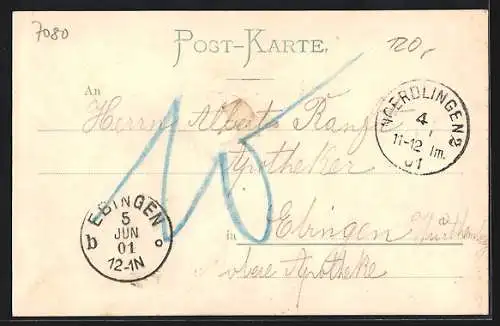 7080
POST-KARTE.
120,
An
Herrn Albert
Apotheker
in Ebingen
obere Apotheke
15
NOERDLINGEN 2
4
11-12 Im.
01
EBINGEN
5
JUN
01
12-1N
b